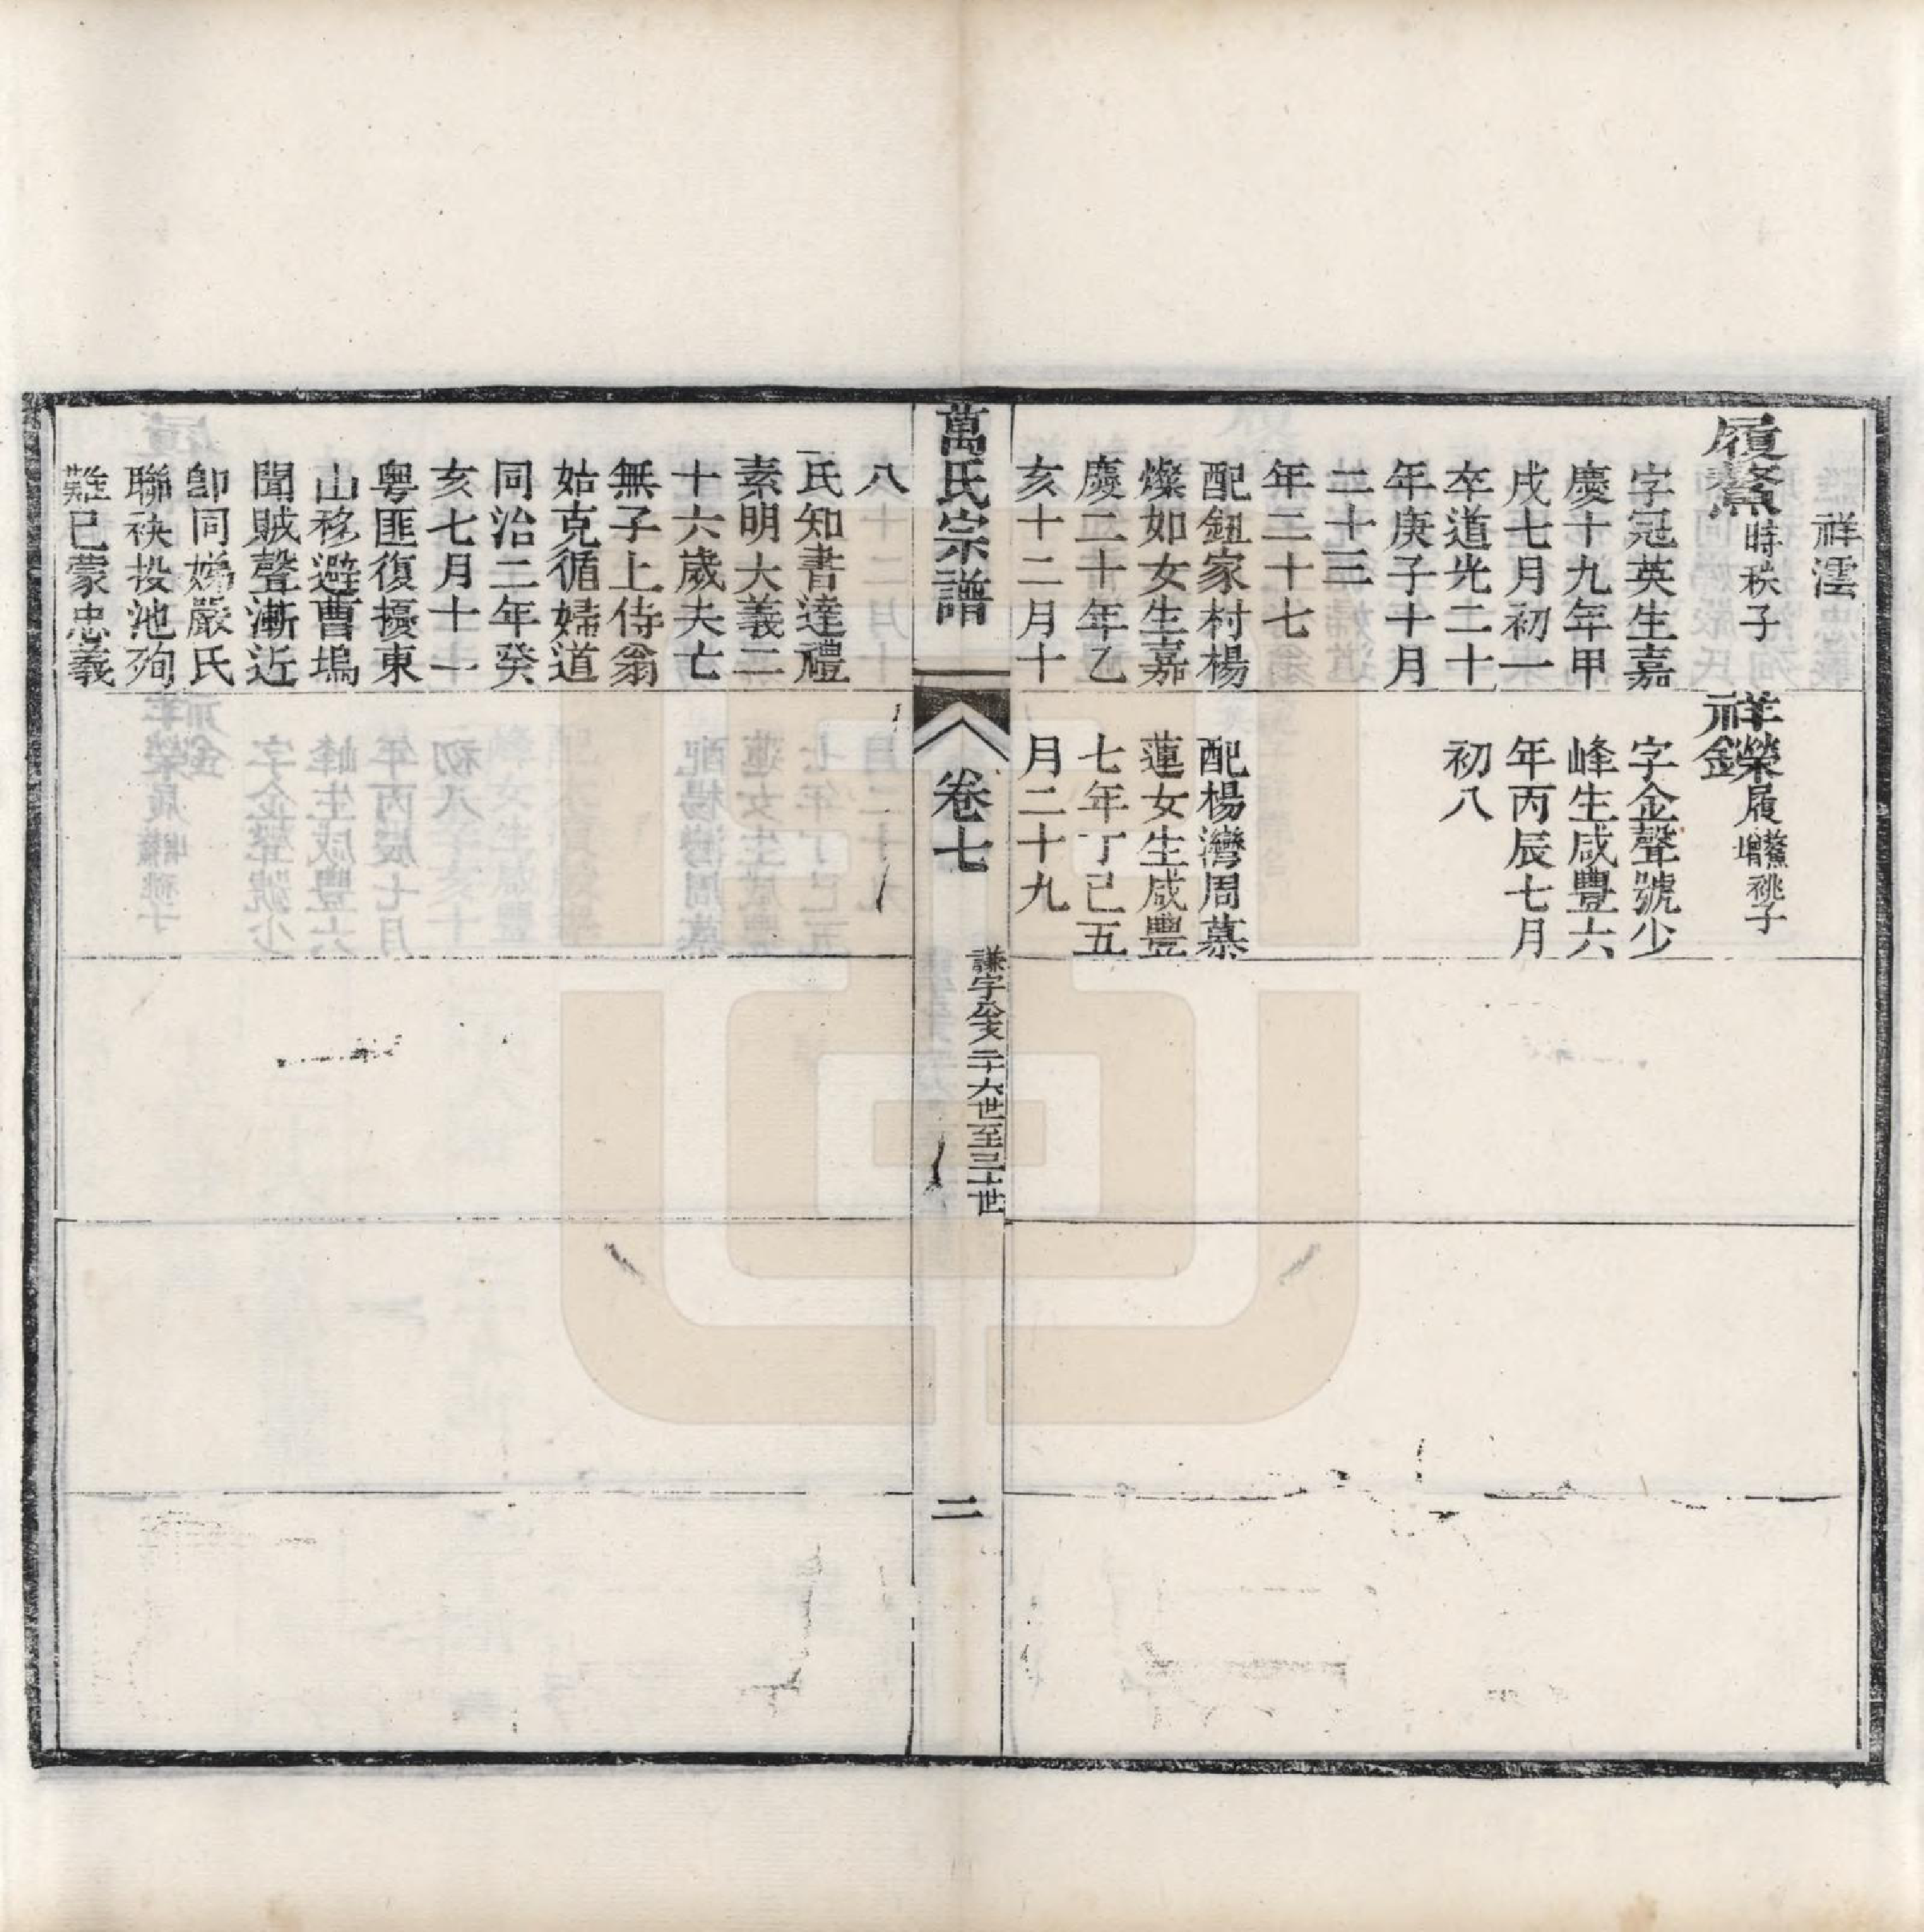 祥澐
履鰲時秩子
字冠英生嘉
慶十九年甲
戌七月初一
卒道光二十
年庚子十月
二十三
年二十七
配鈕家村楊
燦如女生嘉
慶二十年乙
亥十二月十
祥榮履鰲子
元鎔履增祧子
字金聲號少
峰生咸豐六
年丙辰七月
初八
配楊灣周慕
蓮女生咸豐
七年丁巳五
月二十九
萬氏宗譜
卷七
謙字公支二十六世至三十世
二
八
氏知書達禮
素明大義二
十六歲夫亡
無子上侍翁
姑克循婦道
同治二年癸
亥七月十一
粵匪復擾東
山移避曹塢
聞賊聲漸近
卽同娣嚴氏
聯袂投池殉
難已蒙忠義